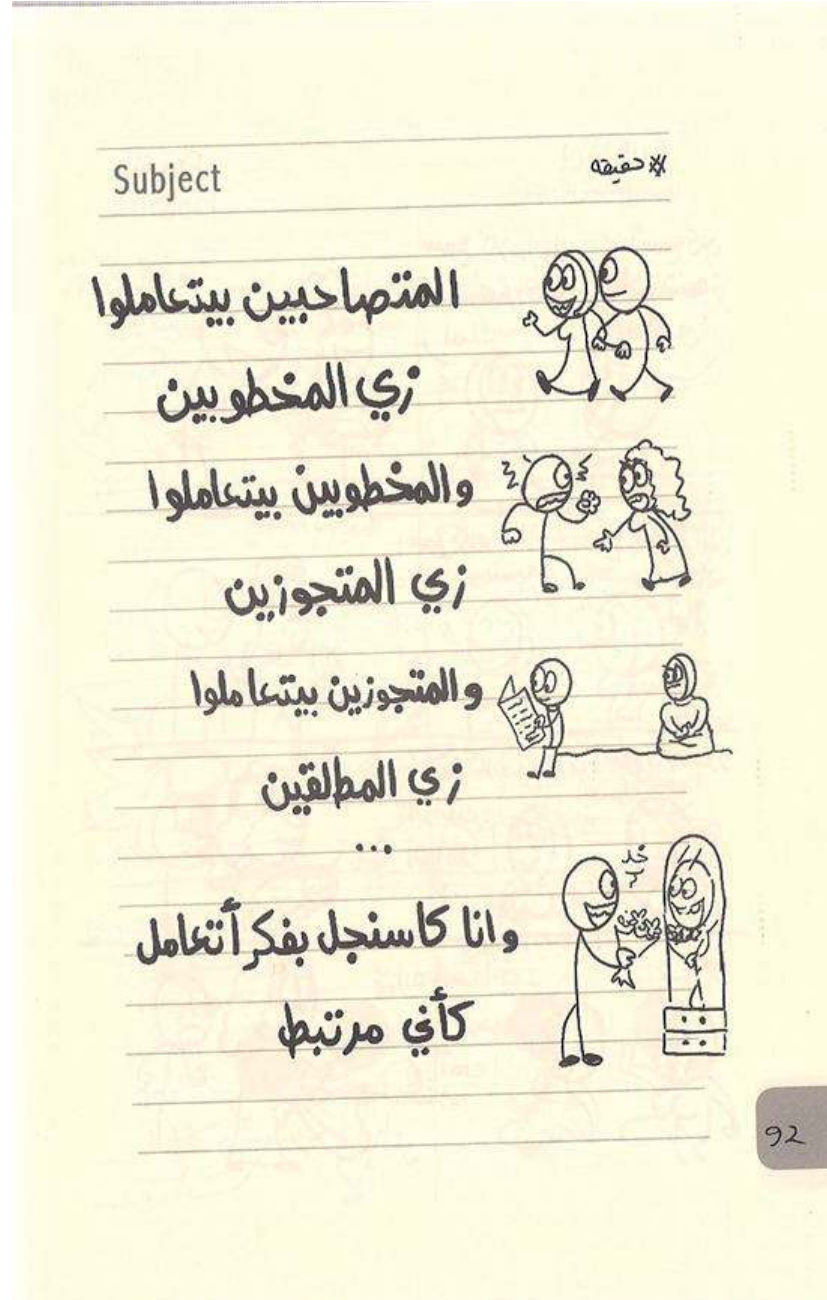 Subject
#حقيقه
المتصاحبين بيتعاملوا
زي المخطوبين
والمخطوبين بيتعاملوا
زي المتجوزين
والمتجوزين بيتعاملوا
زي المطالقين
...
خد
وانا كاسنجل بفكر أتعامل
كأني مرتبط
92